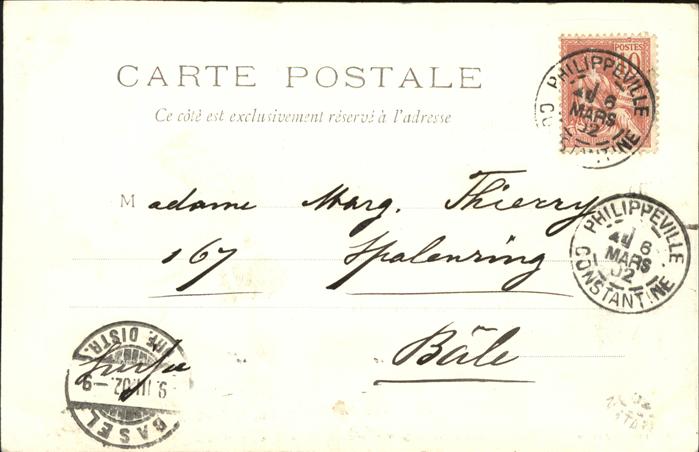 CARTE POSTALE
Ce côté est exclusivement réservé à l'adresse
POSTES
10
PHILIPPEVILLE
6
MARS
02
CONSTANTINE
Madame Marg. Thierry
167 Spalenring
Bâle
PHILIPPEVILLE
6
MARS
02
CONSTANTINE
DISTR.
9.III.02.–9
BASEL